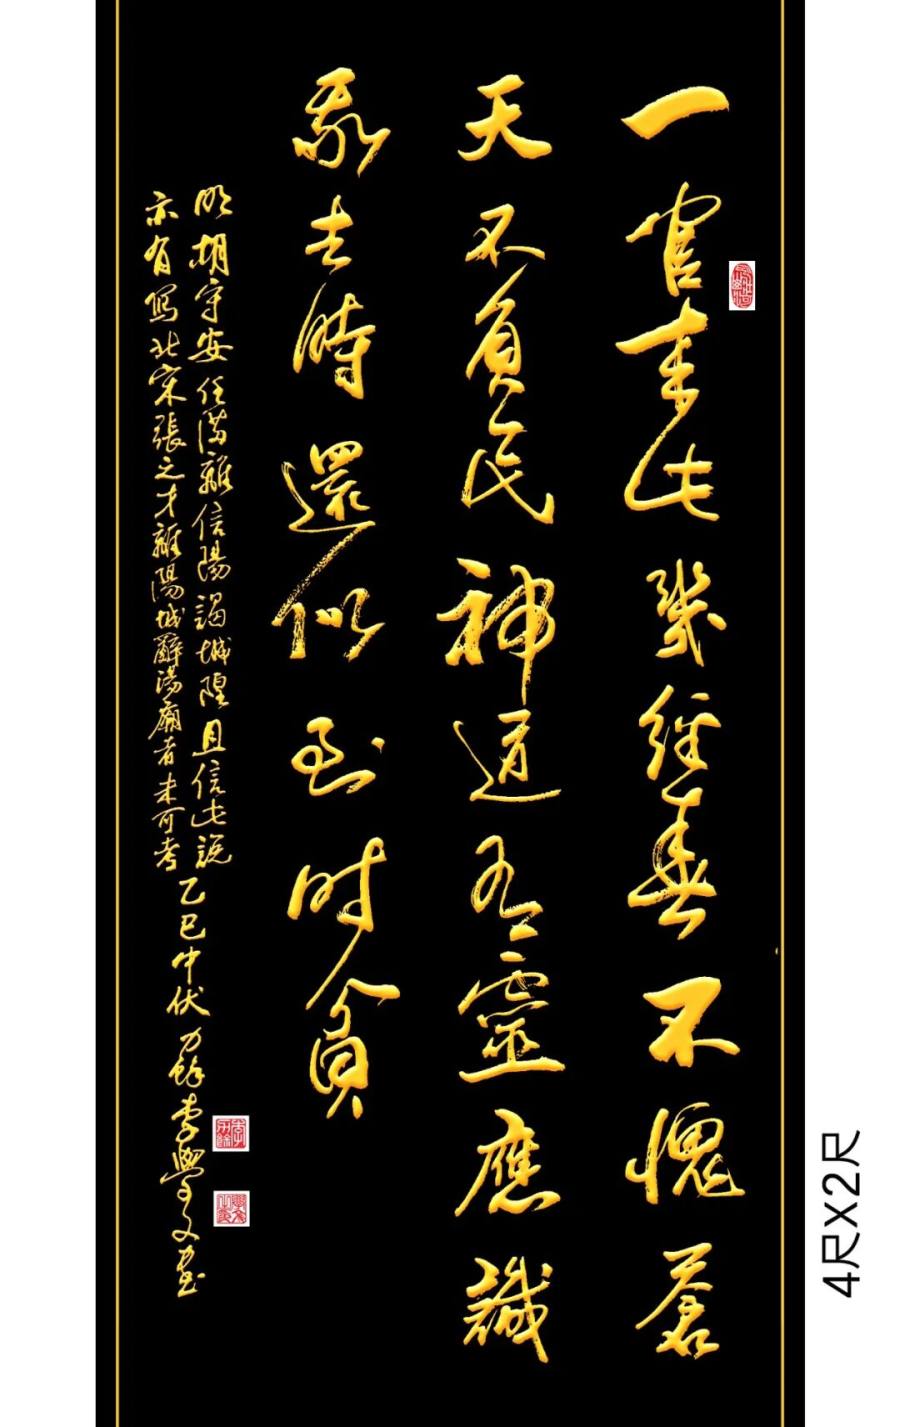 一官来此几經春不愧蒼
天不負民神道有靈應識
我去時還似到时貪
明胡守安任满離信陽謁城隍且信此説
亦有寫北宋張之才離陽城辭湯廟者未可考
乙巳中伏力餘李學文書
4尺X2尺